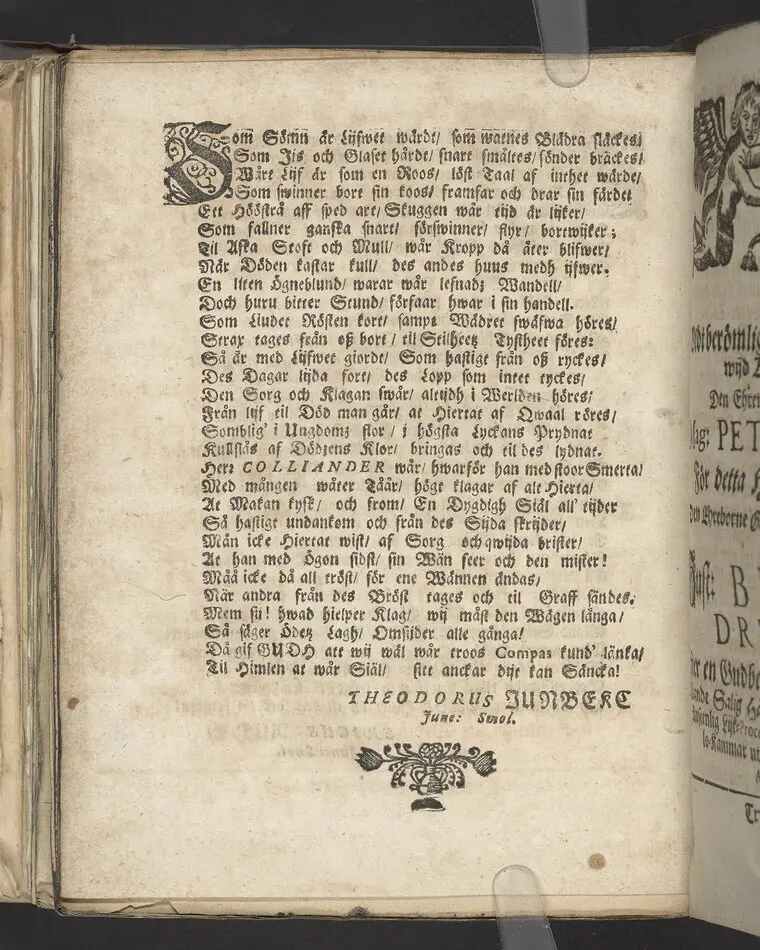 Som̅ Söm̅n är Lijfwet wärdt/ som̅ watnes Blädra släckes/
Som Jis och Glaset hårdt/ snart smältes/ sönder bräckes/
Wårt Lijf är som en Roos/ löst Taal af inthet wärde/
Som swinner bort sin koos/ framfar och drar sin färdet
Ett Hööstrå aff sped art/ Skuggen wår tijd är lijker/
Som fallner ganska snart/ förswinner/ flyr/ bortwijker;
Til Aska Stoft och Mull/ wår Kropp då åter blifwer/
När Döden kastar kull/ des andes huus medh ijfwer.
En liten Ögneblund/ warar wår lefnadz Wandell/
Doch huru bitter Stund/ förfaar hwar i sin handell.
Som Liudet Rösten kort/ sampt Wädret swäfwa höres/
Strax tages från oß bort/ til Stilheetz Tystheet föres:
Så är med Lijfwet giordt/ Som hastigt från oß ryckes/
Des Dagar lijda fort/ des Lopp som intet tyckes/
Den Sorg och Klagan swår/ altijdh i Werlden höres/
Från lijf til Död man går/ at Hiertat af Qwaal röres/
Somblig' i Ungdomz flor/ i högsta Lyckans Prydnat
Kullslås af Dödzens Klor/ bringas och til des lydnat.
Herr COLLIANDER wår/ hwarför han med stoor Smerta/
Med mången wåter Tåår/ högt klagar af alt Hierta/
At Makan kysk/ och from/ En Dygdigh Siäl all' tijder
Så hastigt undankom och från des Sijda skrijder/
Mån icke Hiertat wist/ af Sorg och qwijda brister/
At han med Ögon sidst/ sin Wän seer och den mister!
Måå icke då all tröst/ för ene Wännen ändas/
När andra från des Bröst tages och til Graff sändes.
Mem sij! hwad hielper Klag/ wij måst den Wägen långa/
Så säger Ödetz Lagh/ Omsijder alle gånga!
Då gif GUDH att wij wäl wår troos Compas kund' länka/
Til Himlen at wår Siäl/ sitt anckar dijt kan Säncka!
THEODORUS JUNBECK
June: Smol.
PET
För detta
B
DR